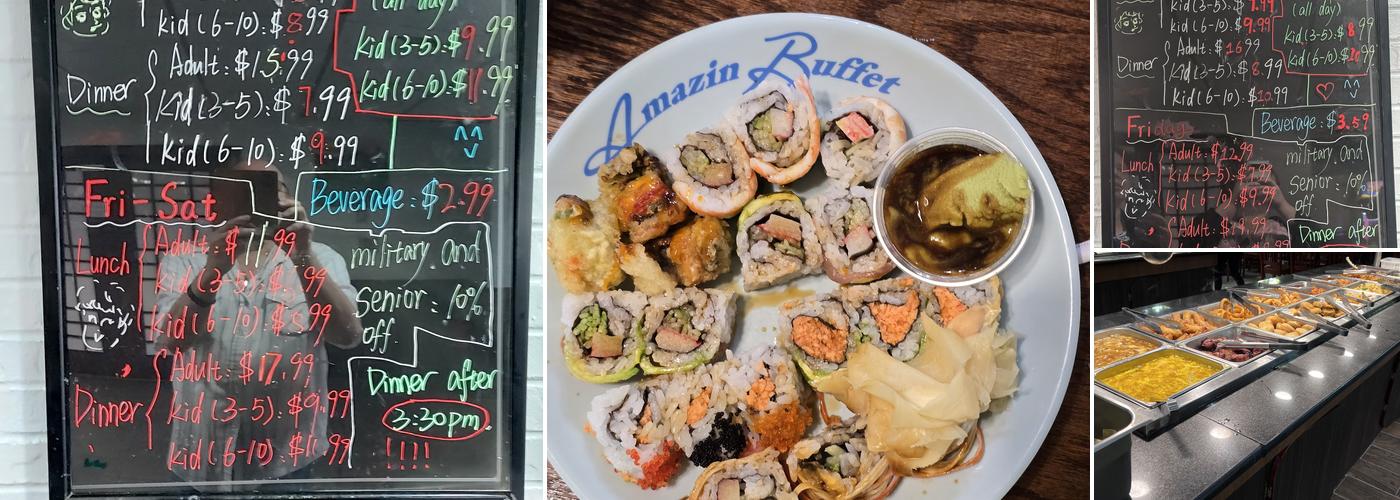 (all day)
Kid (6-10): $8.99
Kid (3-5): $9.99
Kid (6-10): $11.99
Dinner
Adult: $15.99
Kid (3-5): $7.99
Kid (6-10): $9.99
^^
Fri-Sat
Beverage: $2.99
Lunch
Adult: $11.99
Kid (3-5): $
Kid (6-10): $ .99
military and
Senior: 10%
off.
Dinner
Adult: $17.99
Kid (3-5): $9.99
Kid (6-10): $11.99
Dinner after
3:30pm
!!!!
Amazin Buffet
(all day)
Kid (6-10): $9.99
Kid (3-5): $8.99
Kid (6-10): $ .99
Dinner
Adult: $16.99
Kid (3-5): $8.99
Kid (6-10): $10.99
Friday
Beverage: $3.59
Lunch
Adult: $12.99
Kid (3-5): $7.99
Kid (6-10): $9.99
military and
Senior: 10%
off
Adult: $19.99
Dinner after